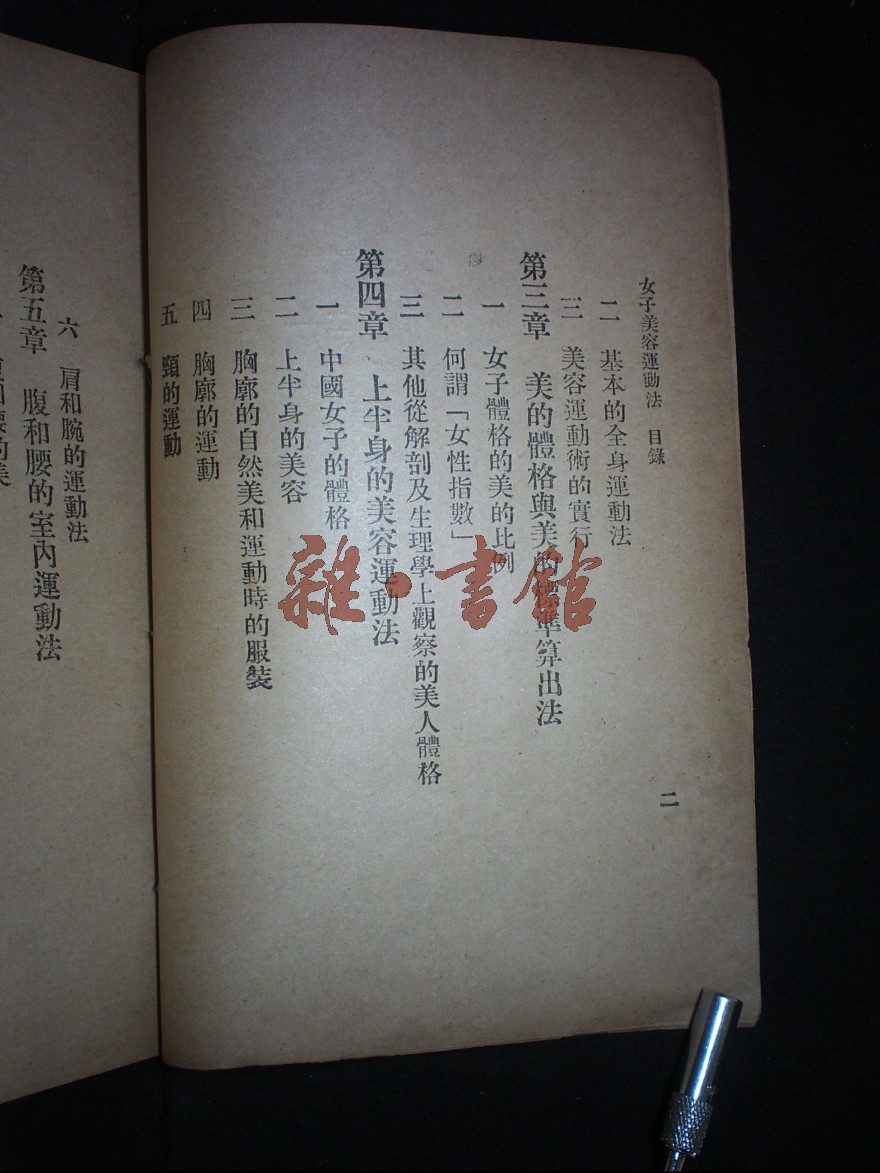 女子美容運動法　目錄
二　基本的全身運動法
三　美容運動術的實行
第三章　美的體格與美的標準算出法
一　女子體格的美的比例
二　何謂「女性指數」
三　其他從解剖及生理學上觀察的美人體格
第四章　上半身的美容運動法
一　中國女子的體格
二　上半身的美容
三　胸廓的自然美和運動時的服裝
四　胸廓的運動
五　頸的運動
二
六　肩和腕的運動法
第五章　腹和腰的室內運動法
雜·書館